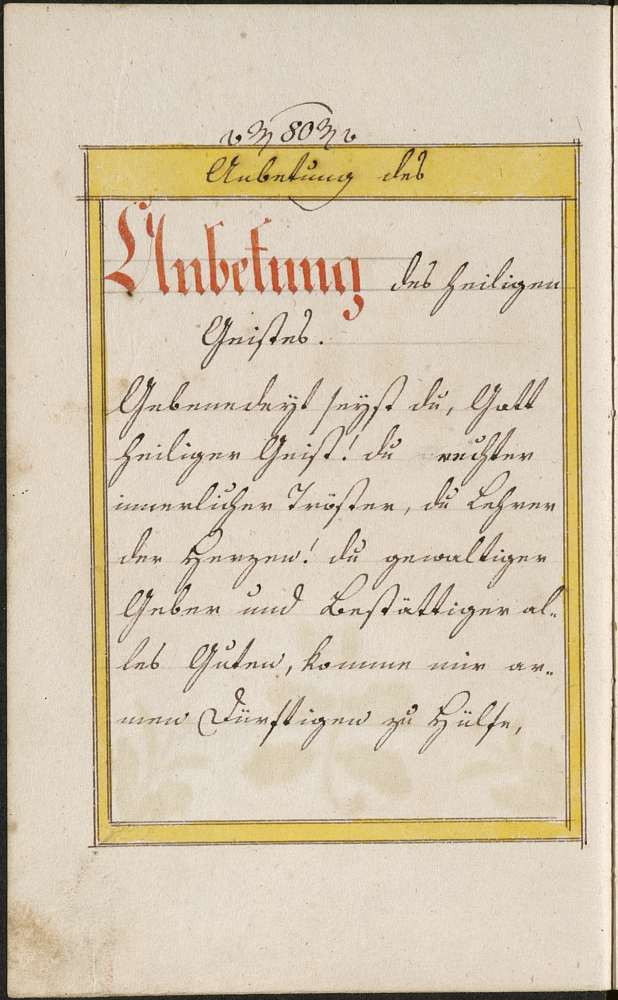 80
Anbetung des
Anbetung des heiligen
Geistes.
Gebenedeyt seyst du, Gott
heiliger Geist! du rechter
innerlicher Tröster, du Lehrer
der Herzen! du gewaltiger
Geber und Bestättiger al-
les Guten, komme mir ar-
men Dürftigen zu Hülfe,